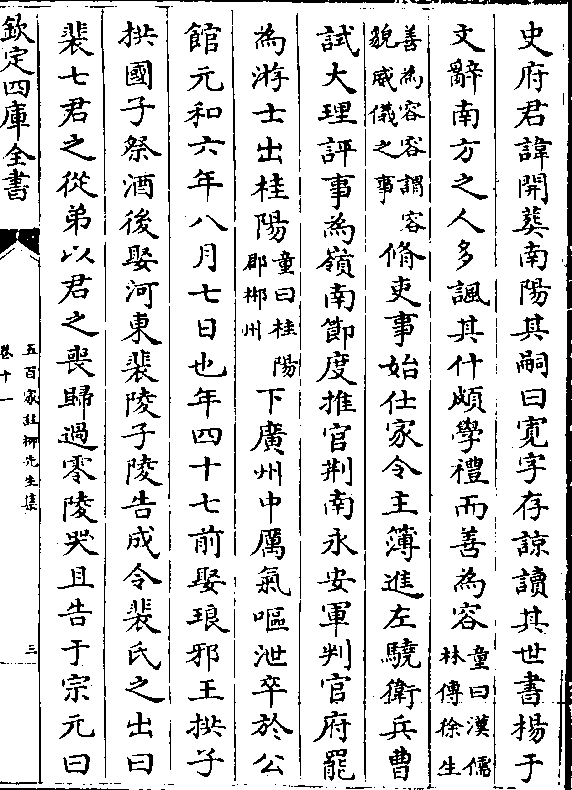 史府君諱開葬南陽其嗣曰寛字存諒讀其世書揚于
文辭南方之人多諷其什頗學禮而善為容童曰漢儒林傳徐生
善為容容謂容貌威儀之事脩吏事始仕家令主簿進左驍衛兵曹
試大理評事為嶺南節度推官荆南永安軍判官府罷
為游士出桂陽童曰桂陽郡郴州下廣州中厲氣嘔泄卒於公
館元和六年八月七日也年四十七前娶琅邪王拱子
拱國子祭酒後娶河東裴陵子陵告成令裴氏之出曰
裴七君之從弟以君之喪歸過零陵哭且告于宗元曰
欽定四庫全書
五百家註柳先生集
卷十一
三